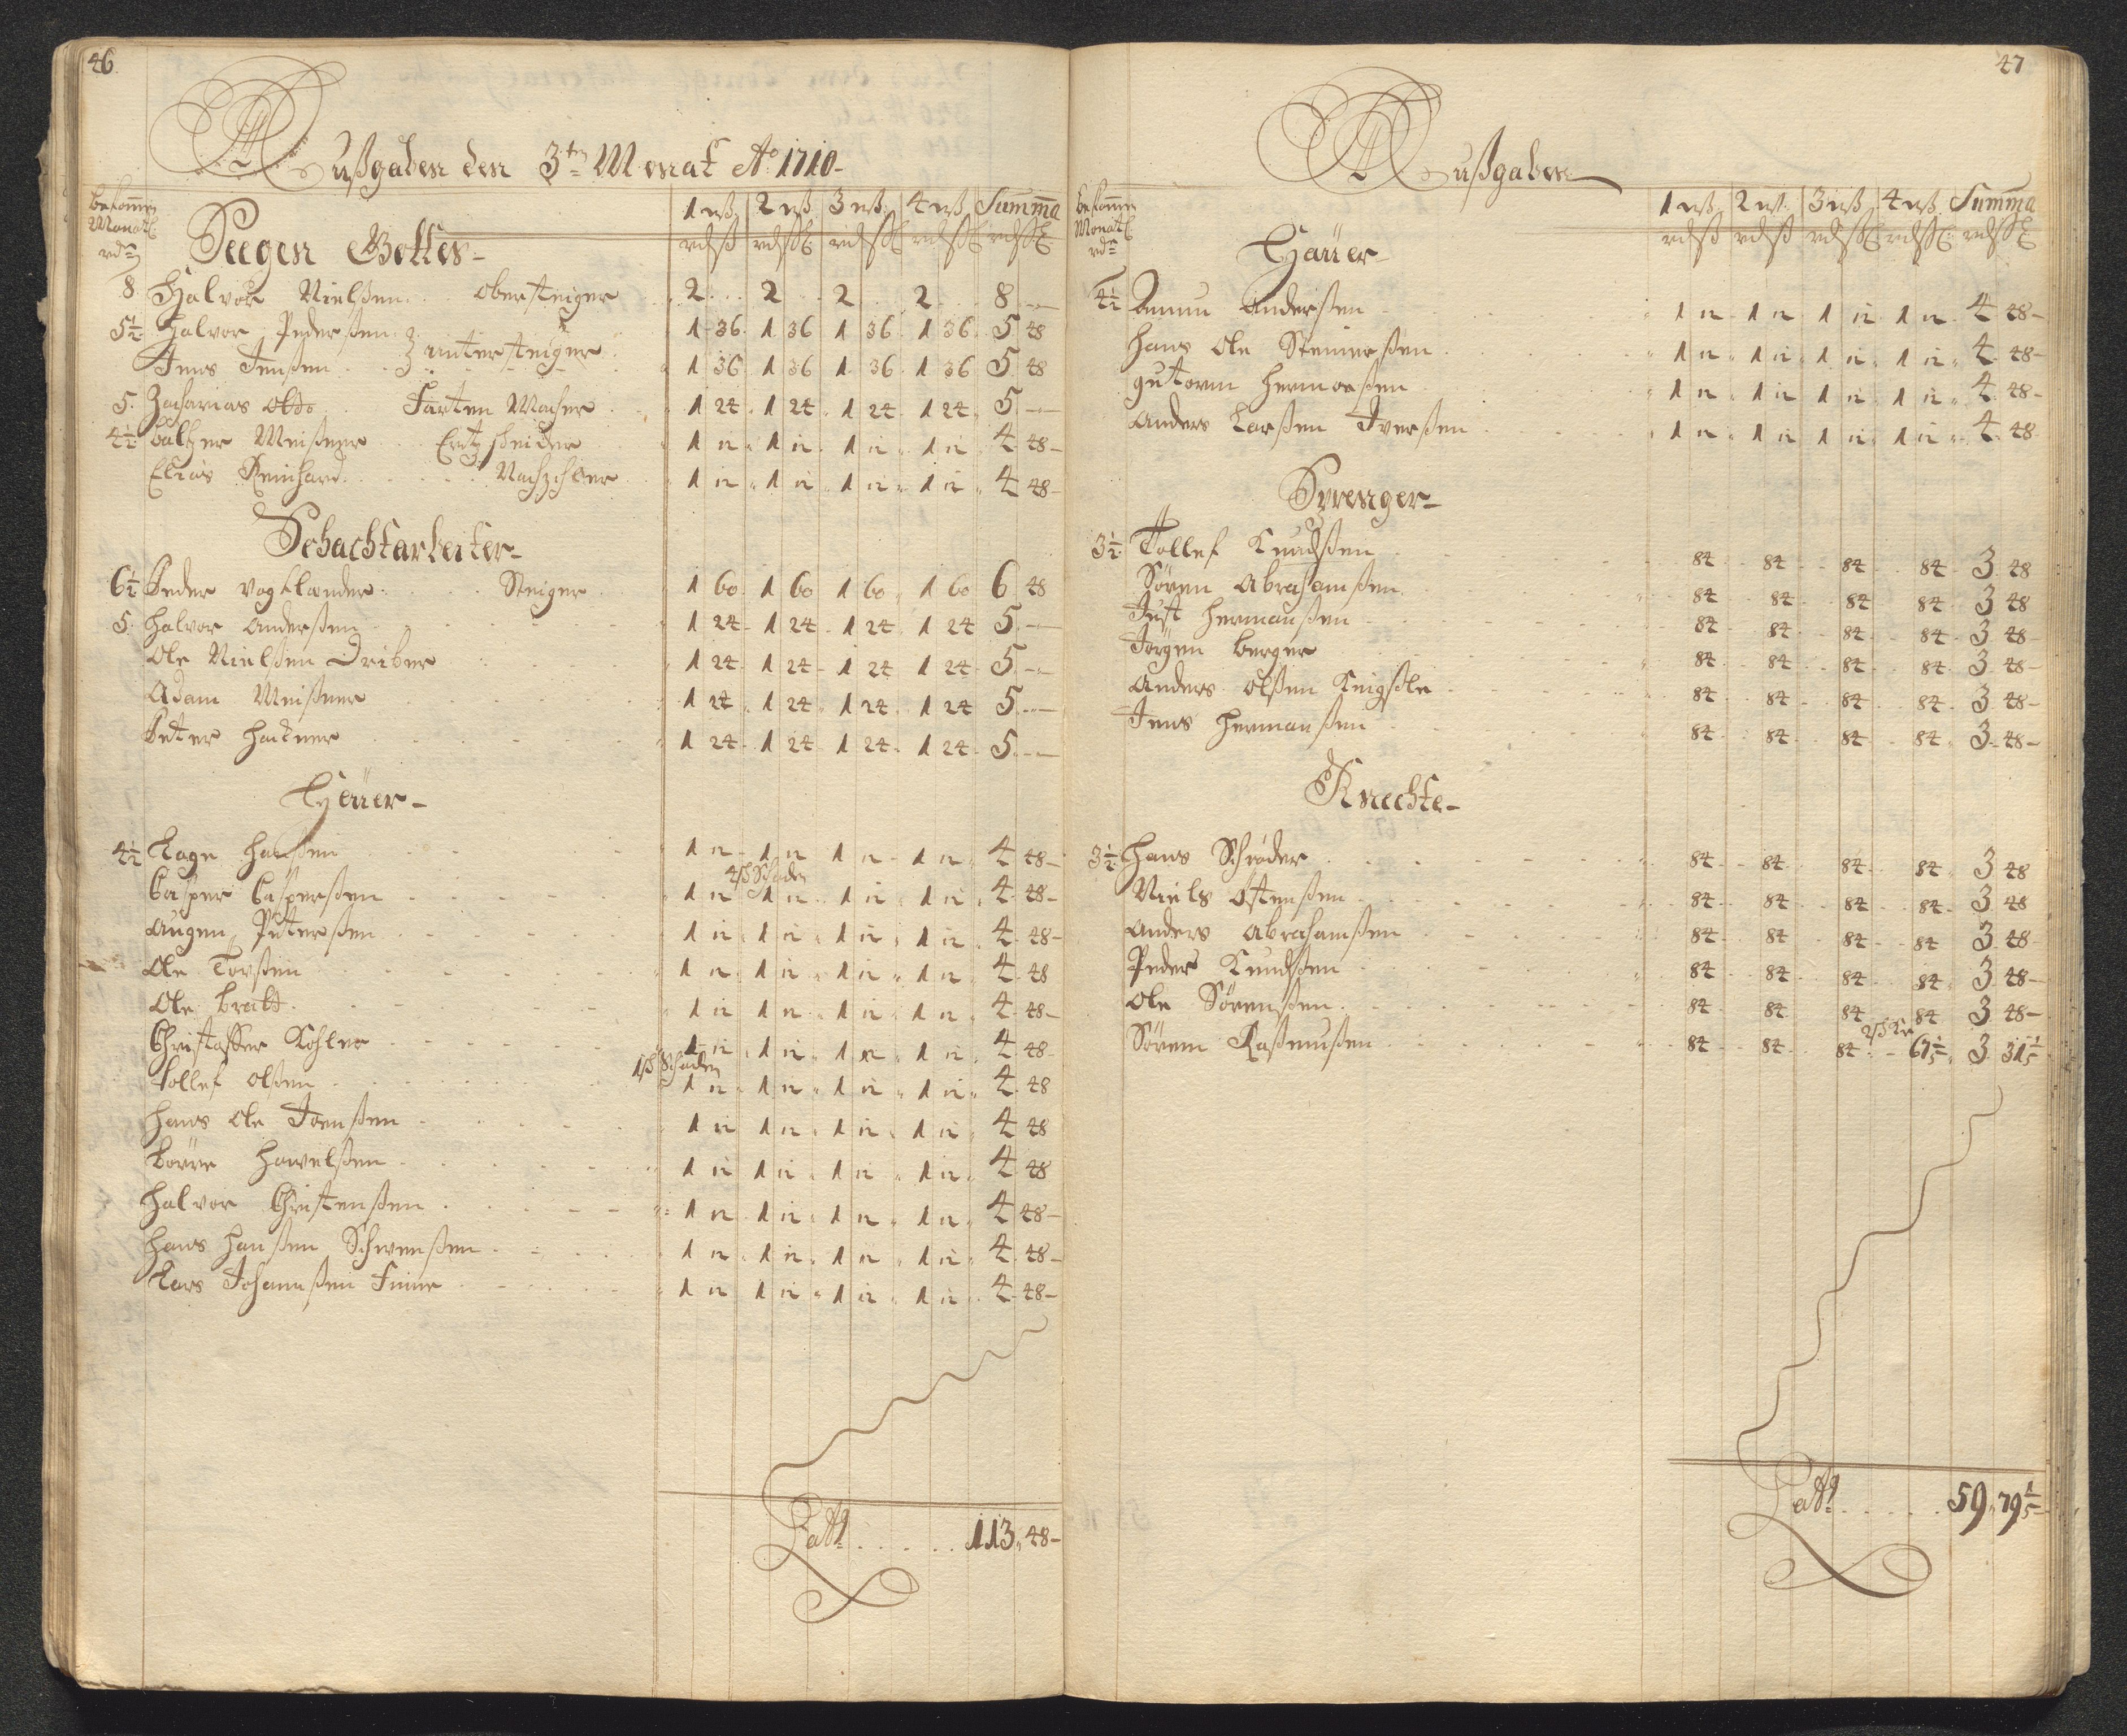 46
Außgaben den 3ten Monat Ao 1710
bekommen Monatl. rdr
1 wß 2 wß 3 wß 4 wß Summa
rdß rdßh rdßh rdßh rdßh
Seegen Gottes
8 Halvor Nielßen Obersteiger 2 2 2 2 8
5½ Halvor Pederßen 1 36 1 36 1 36 1 36 5 48
Untersteiger
Jens Jenßen 1 36 1 36 1 36 1 36 5 48
5 Zacharias Olde Karten Macher 1 24 1 24 1 24 1 24 5
4½ Baltzer Meißner Ertz sheider 1 12 1 12 1 12 1 12 4 48
Elias Reinhard Nachzehler 1 12 1 12 1 12 1 12 4 48
Schachtarbeiter
6½ Peder Vogtlander Steiger 1 60 1 60 1 60 1 60 6 48
5 Halvor Anderßen 1 24 1 24 1 24 1 24 5
Ole Nielßen Driber 1 24 1 24 1 24 1 24 5
Adam Meißner 1 24 1 24 1 24 1 24 5
Peter 1 24 1 24 1 24 1 24 5
Häüer
4½ Lage Hanßen 1 12 1 12 1 12 1 12 4 48
4ß Schaden
Casper Casperßen 1 12 1 12 1 12 1 12 4 48
Augen Peterßen 1 12 1 12 1 12 1 12 4 48
Ole Torßen 1 12 1 12 1 12 1 12 4 48
Ole Bratt 1 12 1 12 1 12 1 12 4 48
Christoffer Kohler 1 12 1 12 1 12 1 12 4 48
1ß Schaden
Tollef Olßen 1 12 1 12 1 12 1 12 4 48
Hans Ole Joenßen 1 12 1 12 1 12 1 12 4 48
Börre Hawelßen 1 12 1 12 1 12 1 12 4 48
Halvor Christenßen 1 12 1 12 1 12 1 12 4 48
Hans Hanßen Schwenßen 1 12 1 12 1 12 1 12 4 48
Lars Johanßen Finne 1 12 1 12 1 12 1 12 4 48
Latt 113 48
47
Außgaben
bekommen Monatl. rdr
1 wß 2 wß 3 wß 4 wß Summa
rdß rdß rdßh rdßh rdßh
Häüer
4½ Amun Anderßen 1 12 1 12 1 12 1 12 4 48
Hans Ole Steinerßen 1 12 1 12 1 12 1 12 4 48
Gutorm Hermoeßen 1 12 1 12 1 12 1 12 4 48
Anders Larßen Iverßen 1 12 1 12 1 12 1 12 4 48
Sprenger
3½ Tollef Knudßen 84 84 84 84 3 48
Sören Abrahamßen 84 84 84 84 3 48
Just Hermanßen 84 84 84 84 3 48
Jörgen Berger 84 84 84 84 3 48
Anders Olßen 84 84 84 84 3 48
Jens Hermanßen 84 84 84 84 3 48
Knechte
3½ Hans Schröder 84 84 84 84 3 48
Niels Östenßen 84 84 84 84 3 48
Anders Abrahamßen 84 84 84 84 3 48
Peder Knudßen 84 84 84 84 3 48
Ole Sörenßen 84 84 84 84 3 48
2ß Kr
Sören Raßmußen 84 84 84 67⅕ 3 31⅕
Latt 59 79⅕